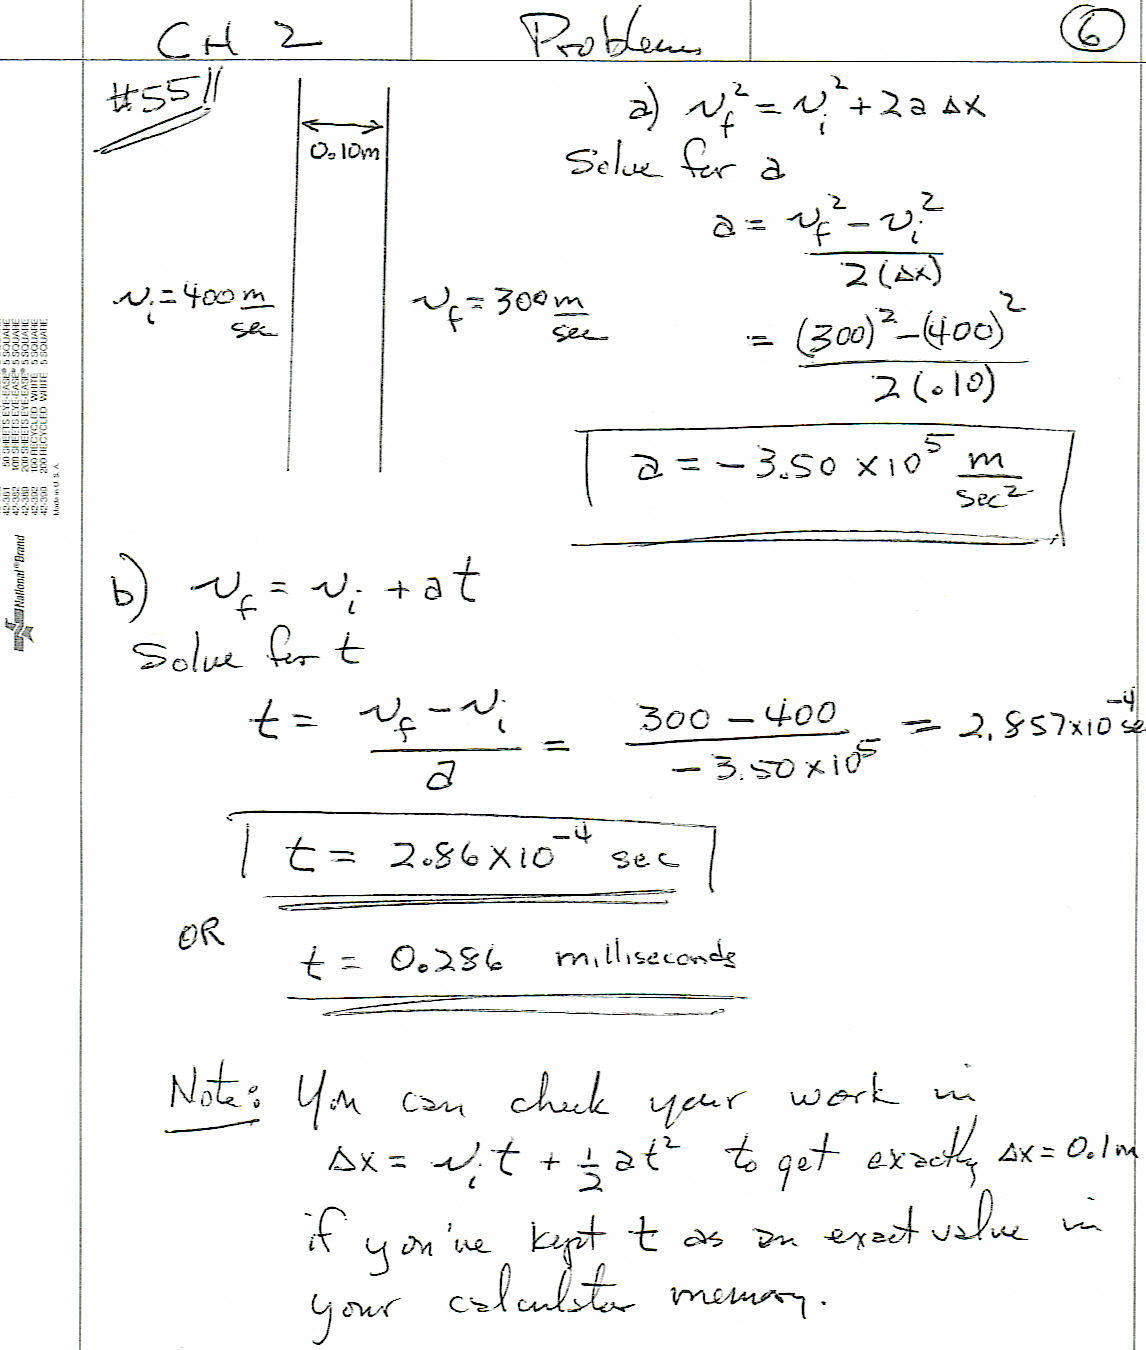 CH 2 Problems 6
#55
0.10m
v_i = 400 m/sec
v_f = 300 m/sec
a) v_f² = v_i² + 2a Δx
Solve for a
a = (v_f² - v_i²) / 2(Δx)
= ((300)² - (400)²) / 2(.10)
a = -3.50 x10⁵ m/sec²
b) v_f = v_i + at
Solve for t
t = (v_f - v_i) / a = (300 - 400) / (-3.50 x10⁵) = 2.857x10⁻⁴ se
t = 2.86x10⁻⁴ sec
OR
t = 0.286 milliseconds
Note: You can check your work in
Δx = v_i t + ½ at² to get exactly Δx = 0.1m
if you've kept t as an exact value in
your calculator memory.
42-381 50 SHEETS EYE-EASE® 5 SQUARE
42-382 100 SHEETS EYE-EASE® 5 SQUARE
42-389 200 SHEETS EYE-EASE® 5 SQUARE
42-392 100 RECYCLED WHITE 5 SQUARE
42-399 200 RECYCLED WHITE 5 SQUARE
Made in U.S.A.
National®Brand